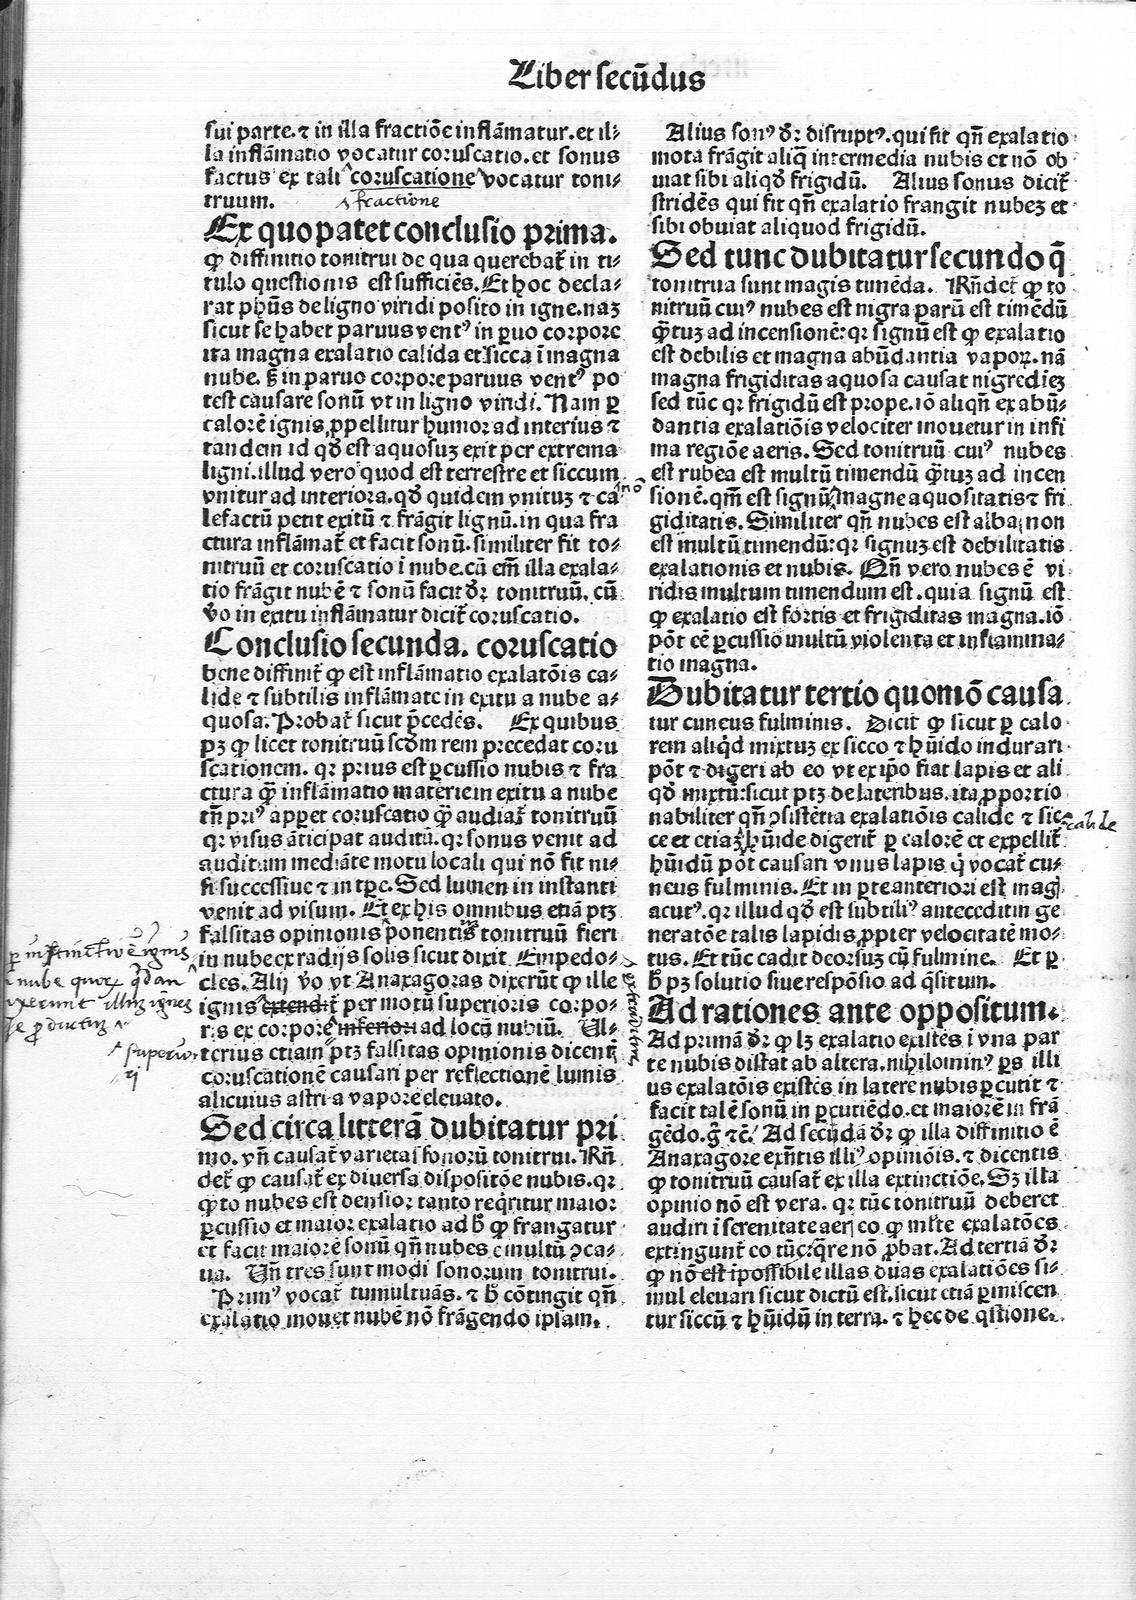 Liber secūdus
sui parte. ⁊ in illa fractiōe inflāmatur. et il⸗
la inflāmatio vocatur coruscatio. et sonus
factus ex tali coruscatione vocatur toni⸗
truum.
fractione
Ex quo patet conclusio prima.
ꝙ diffinitio tonitrui de qua querebat̄ in ti⸗
tulo questionis est sufficiēs. Et hoc decla⸗
rat phūs de ligno viridi posito in igne. naꝫ
sicut se habet paruus ventꝰ in ꝑuo corpore
ita magna exalatio calida et sicca ī magna
nube. sꝫ in paruo corpore paruus ventꝰ po
test causare sonū vt in ligno viridi. Nam ꝑ
calorē ignis ꝓpellitur humor ad interius ⁊
tandem id qd̄ est aquosuꝫ exit per extrema
ligni. illud vero quod est terrestre et siccum
vnitur ad interiora. qd̄ quidem vnituꝫ ⁊ ca
lefactū petit exitū ⁊ frāgit lignū. in qua fra
ctura inflāmat̄ et facit sonū. similiter fit to⸗
nitruū et coruscatio ī nube. cū em̄ illa exala⸗
tio frāgit nubē ⁊ sonū facit dr̄ tonitruū. cū
v̄o in exitu inflāmatur dicit̄ coruscatio.
Conclusio secunda. coruscatio
bene diffinit̄ ꝙ est inflāmatio exalatōis ca⸗
lide ⁊ subtilis inflāmate in exitu a nube a⸗
quosa. Probat̄ sicut p̄cedēs. Ex quibus
pꝫ ꝙ licet tonitruū scd̄m rem precedat coru
scationem. qꝛ prius est ꝑcussio nubis ⁊ fra
ctura ꝙ̄ inflāmatio materie in exitu a nube
tn̄ priꝰ apparet coruscatio ꝙ̄ audiat̄ tonitruū
qꝛ visus āticipat auditū. qꝛ sonus venit ad
auditum mediāte motu locali qui nō fit ni⸗
si successiue ⁊ in tꝑe. Sed lumen in instanti
venit ad visum. Et ex his omnibus etiā ptꝫ
falsitas opinionis ponentis tonitruū fieri
in nube ex radijs solis sicut dixit Empedo⸗
cles. Alij v̄o vt Anaxagoras dixerūt ꝙ ille
ignis extendit̄ per motū superioris corpo⸗
ris ex corpore inferiori ad locū nubiū. Ul⸗
terius etiam ptꝫ falsitas opinionis dicentiū
coruscationē causari per reflectionē lumis
alicuius astri a vapore eleuato.
superiori
extenditur
Sed circa litterā dubitatur pri
mo. vn̄ causat̄ varietas sonorū tonitrui. Rn̄
det̄ ꝙ causat̄ ex diuersa dispositōe nubis. qꝛ
ꝙ̄to nubes est densior tanto reqͥritur maior
ꝑcussio et maior exalatio ad h̄ ꝙ frangatur
et facit maiorē sonū qn̄ nubes ē multū ꝯca⸗
ua. Un̄ tres sunt modi sonorum tonitrui.
Primꝰ vocat̄ tumultuās. ⁊ h̄ cōtingit qn̄
exalatio mouet nubē nō frāgendo ipsam.
Alius sonꝰ dr̄ disruptꝰ. qui fit qn̄ exalatio
mota frāgit aliqͣ intermedia nubis et nō ob
uiat sibi aliqd̄ frigidū. Alius sonus dicit̄
stridēs qui fit qn̄ exalatio frangit nubeꝫ et
sibi obuiat aliquod frigidū.
Sed tunc dubitatur secundo q̄
tonitrua sunt magis timēda. Rn̄det̄ ꝙ to
nitruū cuiꝰ nubes est nigra parū est timēdū
ꝙ̄tuꝫ ad incensionē: qꝛ signū est ꝙ exalatio
est debilis et magna abūdantia vaporꝝ. nā
magna frigiditas aquosa causat nigredieꝫ
sed tūc qꝛ frigidū est prope. iō aliqn̄ ex abū⸗
dantia exalatiōis velociter mouetur in infi
ma regiōe aeris. Sed tonitruū cuiꝰ nubes
est rubea est multū timendū ꝙ̄tuꝫ ad incen
sionē. qm̄ est signū magne aquositatis ⁊ fri
giditatis. Similiter qn̄ nubes est alba non
est multū timendū: qꝛ signuꝫ est debilitatis
exalationis et nubis. Qn̄ vero nubes ē vi
ridis multum timendum est. quia signū est
ꝙ exalatio est fortis et frigiditas magna. iō
pōt eē ꝑcussio multū violenta et inflamma⸗
tio magna.
Dubitatur tertio quomō causa
tur cuneus fulminis. Dicit̄ ꝙ sicut ꝑ calo
rem aliqͥd mixtuꝫ ex sicco ⁊ hūido indurari
pōt ⁊ digeri ab eo vt ex ip̄o fiat lapis et ali
qd̄ mixtū: sicut ptꝫ de lateribus. ita ꝓportio
nabiliter qn̄ ꝯsistētia exalatiōis calide ⁊ sic⸗
ce et etiaꝫ hūide digerit̄ ꝑ calorē et expellit̄
calide
hūidū pōt causari vnus lapis qͥ vocat̄ cu⸗
neus fulminis. Et in ꝑte anteriori est magꝭ
acutꝰ. qꝛ illud qd̄ est subtiliꝰ antecedit in ge
neratōe talis lapidis ꝓpter velocitatē mo⸗
tus. Et tūc cadit deorsuꝫ cū fulmine. Et ꝑ
h̄ pꝫ solutio siue respōsio ad qͥsitum.
Ad rationes ante oppositum.
Ad primā dr̄ ꝙ lꝫ exalatio existēs ī vna par
te nubis distat ab altera. nihilominꝰ ꝑs illi
us exalatōis existēs in latere nubis ꝑcutit ⁊
facit talē sonū in ꝑcutiēdo. et maiorē in frā
gēdo. g̊ ⁊c̄. Ad secūdā dr̄ ꝙ illa diffinitio ē
Anaxagore exn̄tis illiꝰ opiniōis. ⁊ dicentis
ꝙ tonitruū causat̄ ex illa extinctiōe. Sꝫ illa
opinio nō est vera. qꝛ tūc tonitruū deberet
audiri ī serenitate aeris eo ꝙ mlte exalatōes
extingunt̄ eo tūc. qͣre nō ꝓbat. Ad tertiā dr̄
ꝙ nō est īpossibile illas duas exalatiōes si⸗
mul eleuari sicut dictū est. sicut etiā ꝑmiscen
tur siccū ⁊ hūidū in terra. ⁊ hec de qͥstione.